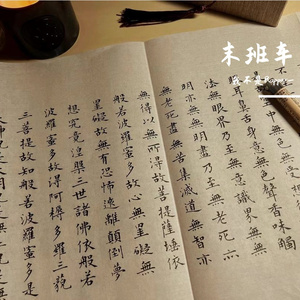 末班车
耳鼻舌身意無色聲香味觸
法無眼界乃至無意識界無
明亦無無明盡乃至無老死亦
無老死盡無苦集滅道無智亦
無得以無所得故菩提薩埵依
般若波羅蜜多故心無罣礙無
罣礙故無有恐怖遠離顛倒夢
想究竟涅槃三世諸佛依般若
波羅蜜多故得阿耨多羅三藐
三菩提故知般若波羅蜜多是